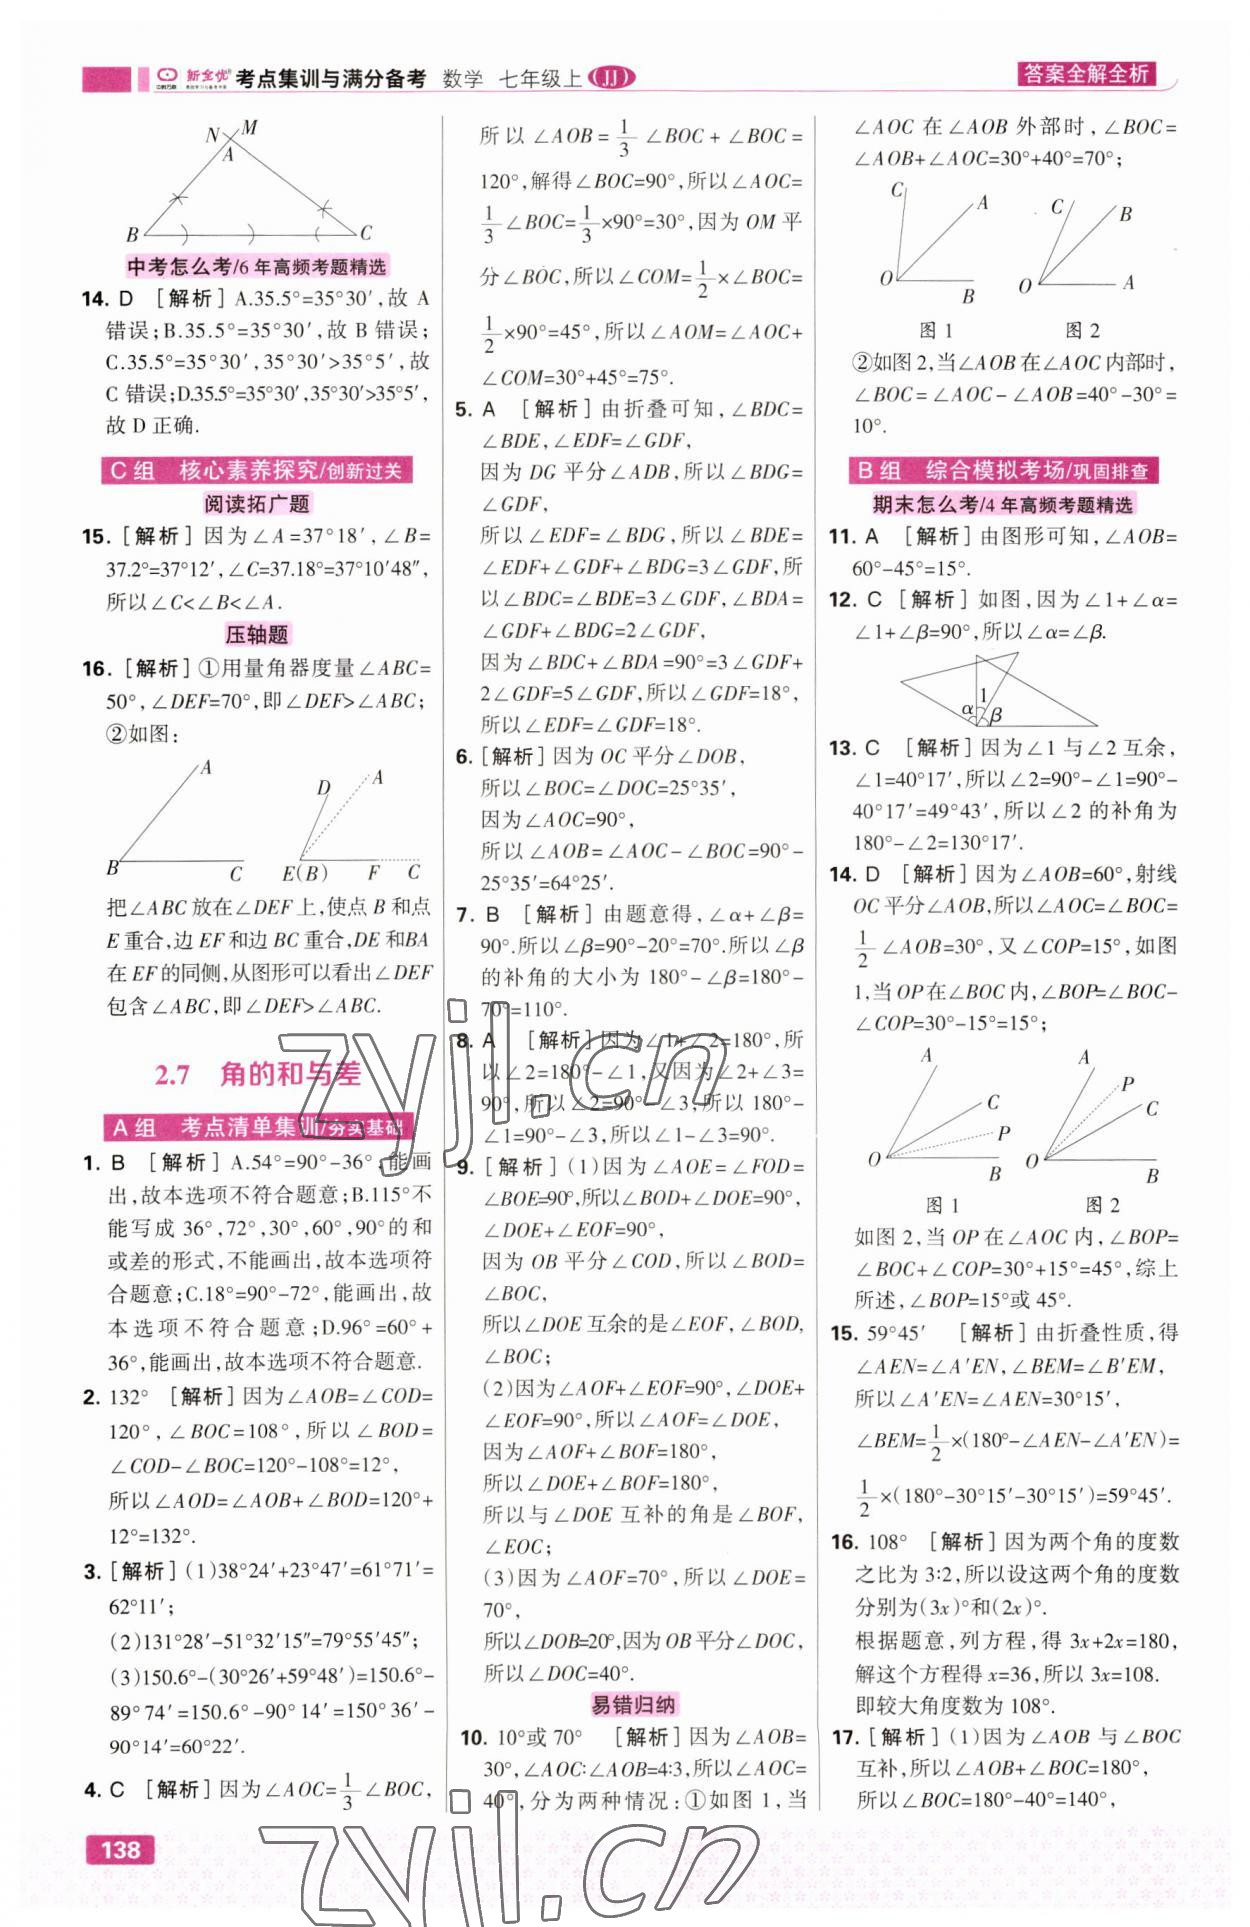 新全优® 考点集训与满分备考 数学 七年级上 (JJ)
答案全解全析
N M
A
B C
中考怎么考/6年高频考题精选
14. D [解析]A.35.5°=35°30′,故 A
错误;B.35.5°=35°30′,故 B 错误;
C.35.5°=35°30′,35°30′>35°5′,故
C 错误;D.35.5°=35°30′,35°30′>35°5′,
故 D 正确.
C 组 核心素养探究/创新过关
阅读拓广题
15. [解析]因为∠A=37°18′,∠B=
37.2°=37°12′,∠C=37.18°=37°10′48″,
所以∠C<∠B<∠A.
压轴题
16. [解析]①用量角器度量∠ABC=
50°,∠DEF=70°,即∠DEF>∠ABC;
②如图:
A
B C
D A
E(B) F C
把∠ABC 放在∠DEF 上,使点 B 和点
E 重合,边 EF 和边 BC 重合,DE 和BA
在 EF 的同侧,从图形可以看出∠DEF
包含∠ABC,即∠DEF>∠ABC.
2.7 角的和与差
A 组 考点清单集训/夯实基础
1. B [解析]A.54°=90°-36°,能画
出,故本选项不符合题意;B.115°不
能写成 36°,72°,30°,60°,90°的和
或差的形式,不能画出,故本选项符
合题意;C.18°=90°-72°,能画出,故
本选项不符合题意;D.96°=60°+
36°,能画出,故本选项不符合题意.
2. 132° [解析]因为∠AOB=∠COD=
120°,∠BOC=108°,所以∠BOD=
∠COD-∠BOC=120°-108°=12°,
所以∠AOD=∠AOB+∠BOD=120°+
12°=132°.
3. [解析](1)38°24′+23°47′=61°71′=
62°11′;
(2)131°28′-51°32′15″=79°55′45″;
(3)150.6°-(30°26′+59°48′)=150.6°-
89°74′=150.6°-90°14′=150°36′-
90°14′=60°22′.
4. C [解析]因为∠AOC=1/3∠BOC,
138
所以∠AOB=1/3∠BOC+∠BOC=
120°,解得∠BOC=90°,所以∠AOC=
1/3∠BOC=1/3×90°=30°,因为 OM 平
分∠BOC,所以∠COM=1/2×∠BOC=
1/2×90°=45°,所以∠AOM=∠AOC+
∠COM=30°+45°=75°.
5. A [解析]由折叠可知,∠BDC=
∠BDE,∠EDF=∠GDF,
因为 DG 平分∠ADB,所以∠BDG=
∠GDF,
所以∠EDF=∠BDG,所以∠BDE=
∠EDF+∠GDF+∠BDG=3∠GDF,所
以∠BDC=∠BDE=3∠GDF,∠BDA=
∠GDF+∠BDG=2∠GDF,
因为∠BDC+∠BDA=90°=3∠GDF+
2∠GDF=5∠GDF,所以∠GDF=18°,
所以∠EDF=∠GDF=18°.
6. [解析]因为 OC 平分∠DOB,
所以∠BOC=∠DOC=25°35′,
因为∠AOC=90°,
所以∠AOB=∠AOC-∠BOC=90°-
25°35′=64°25′.
7. B [解析]由题意得,∠α+∠β=
90°.所以∠β=90°-20°=70°.所以∠β
的补角的大小为 180°-∠β=180°-
70°=110°.
8. A [解析]因为∠1+∠2=180°,所
以∠2=180°-∠1,又因为∠2+∠3=
90°,所以∠2=90°-∠3,所以 180°-
∠1=90°-∠3,所以∠1-∠3=90°.
9. [解析](1)因为∠AOE=∠FOD=
∠BOE=90°,所以∠BOD+∠DOE=90°,
∠DOE+∠EOF=90°,
因为 OB 平分∠COD,所以∠BOD=
∠BOC,
所以∠DOE 互余的是∠EOF,∠BOD,
∠BOC;
(2)因为∠AOF+∠EOF=90°,∠DOE+
∠EOF=90°,所以∠AOF=∠DOE,
因为∠AOF+∠BOF=180°,
所以∠DOE+∠BOF=180°,
所以与∠DOE 互补的角是∠BOF,
∠EOC;
(3)因为∠AOF=70°,所以∠DOE=
70°,
所以∠DOB=20°,因为 OB 平分∠DOC,
所以∠DOC=40°.
易错归纳
10. 10°或 70° [解析]因为∠AOB=
30°,∠AOC:∠AOB=4:3,所以∠AOC=
40°,分为两种情况:①如图 1,当
∠AOC 在∠AOB 外部时,∠BOC=
∠AOB+∠AOC=30°+40°=70°;
C A
O B
图 1
C B
O A
图 2
②如图 2,当∠AOB 在∠AOC 内部时,
∠BOC=∠AOC-∠AOB=40°-30°=
10°.
B 组 综合模拟考场/巩固排查
期末怎么考/4年高频考题精选
11. A [解析]由图形可知,∠AOB=
60°-45°=15°.
12. C [解析]如图,因为∠1+∠α=
∠1+∠β=90°,所以∠α=∠β.
1
α β
13. C [解析]因为∠1 与∠2 互余,
∠1=40°17′,所以∠2=90°-∠1=90°-
40°17′=49°43′,所以∠2 的补角为
180°-∠2=130°17′.
14. D [解析]因为∠AOB=60°,射线
OC 平分∠AOB,所以∠AOC=∠BOC=
1/2∠AOB=30°,又∠COP=15°,如图
1,当 OP 在∠BOC 内,∠BOP=∠BOC-
∠COP=30°-15°=15°;
A
C
P
O B
图 1
A
P
C
O B
图 2
如图 2,当 OP 在∠AOC 内,∠BOP=
∠BOC+∠COP=30°+15°=45°,综上
所述,∠BOP=15°或 45°.
15. 59°45′ [解析]由折叠性质,得
∠AEN=∠A′EN,∠BEM=∠B′EM,
所以∠A′EN=∠AEN=30°15′,
∠BEM=1/2×(180°-∠AEN-∠A′EN)=
1/2×(180°-30°15′-30°15′)=59°45′.
16. 108° [解析]因为两个角的度数
之比为 3:2,所以设这两个角的度数
分别为(3x)°和(2x)°.
根据题意,列方程,得 3x+2x=180,
解这个方程得 x=36,所以 3x=108.
即较大角度数为 108°.
17. [解析](1)因为∠AOB 与∠BOC
互补,所以∠AOB+∠BOC=180°,
所以∠BOC=180°-40°=140°,
zyjl.cn
zyjl.cn